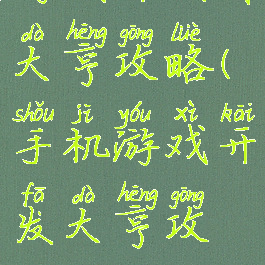 dà hēng gōng lüè
大亨攻略(
shǒu jī yóu xì kāi
手机游戏开
fā dà hēng gōng
发大亨攻